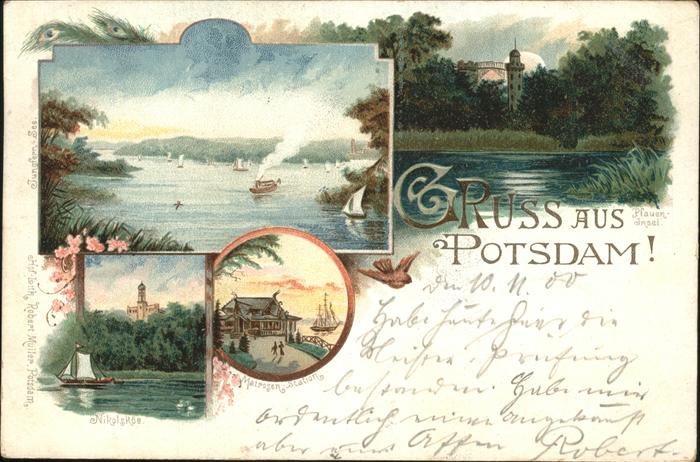 Jungfern-See.
Pfauen-
Insel.
GRUSS AUS
POTSDAM!
Nikolskoe.
Matrosen-Station
Art. Lith. Robert Müller Potsdam.
den 10. 11. 00
Habe heute hier die
Meister Prüfung
bestanden. Habe mir
ordentlich einen angekauft
aber einen Affen Robert.